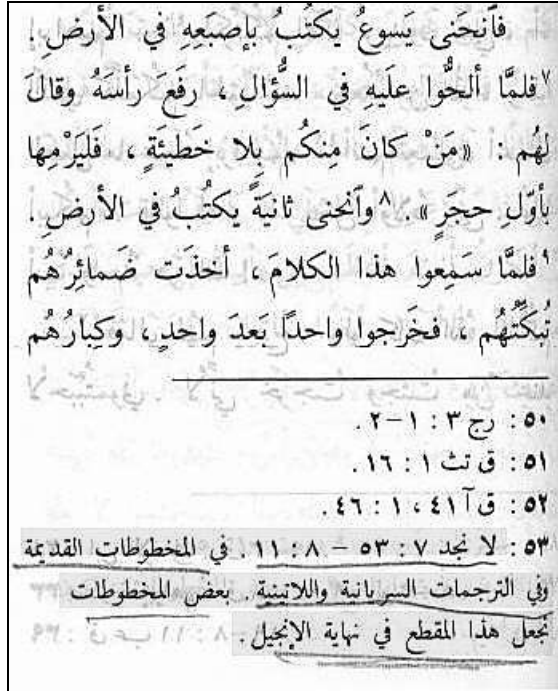 فَآنحَنى يَسوعُ يكتُبُ بإصبَعِهِ في الأرضِ.
٧فلمَّا ألحُّوا علَيهِ في السُّؤالِ، رفَعَ رأسَهُ وقالَ
لهُم: «مَنْ كانَ مِنكُم بِلا خَطيئَةٍ، فَليَرْمِها
بأوَّلِ حجَرٍ». ٨وآنحنى ثانيَةً يكتُبُ في الأرضِ.
٩فلمَّا سَمِعوا هذا الكلامَ، أخذَت ضَمائِرُهُم
تُبكِّتُهُم، فخَرجوا واحدًا بَعدَ واحدٍ، وكِبارُهُم
٥٠: رج ٣: ١-٢.
٥١: ق تث ١: ١٦.
٥٢: ق آ ٤١، ١: ٤٦.
٥٣: لا نجد ٧: ٥٣ – ٨: ١١ في المخطوطات القديمة
وفي الترجمات السريانية واللاتينية. بعض المخطوطات
تجعل هذا المقطع في نهاية الإنجيل.